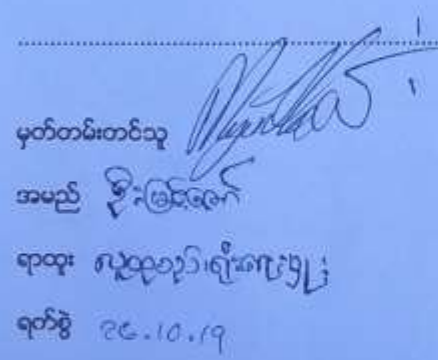 မှတ်တမ်းတင်သူ
အမည် ဦးမြင့်ဇော်
ရာထူး လူထုစည်းရုံးရေးမှူး
ရက်စွဲ ၁၆.၁၀.၁၉